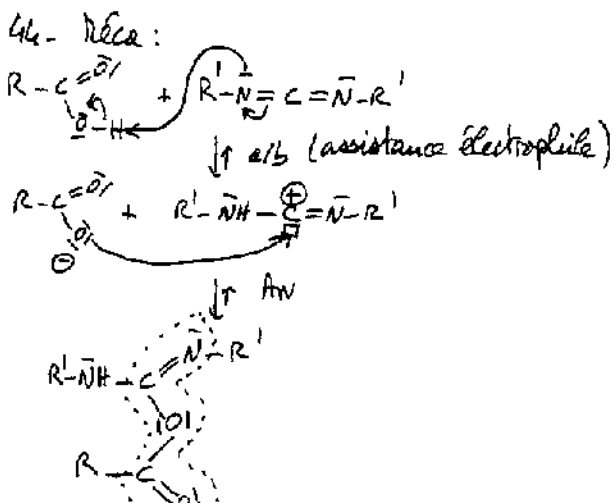 44- Méca :
R-C=O + R'-N=C=N-R'
O-H
a/b (assistance électrophile)
R-C=O + R'-NH-C=N-R'
⊖ O ⊕
AN
R'-NH-C=N-R'
O
R-C
O